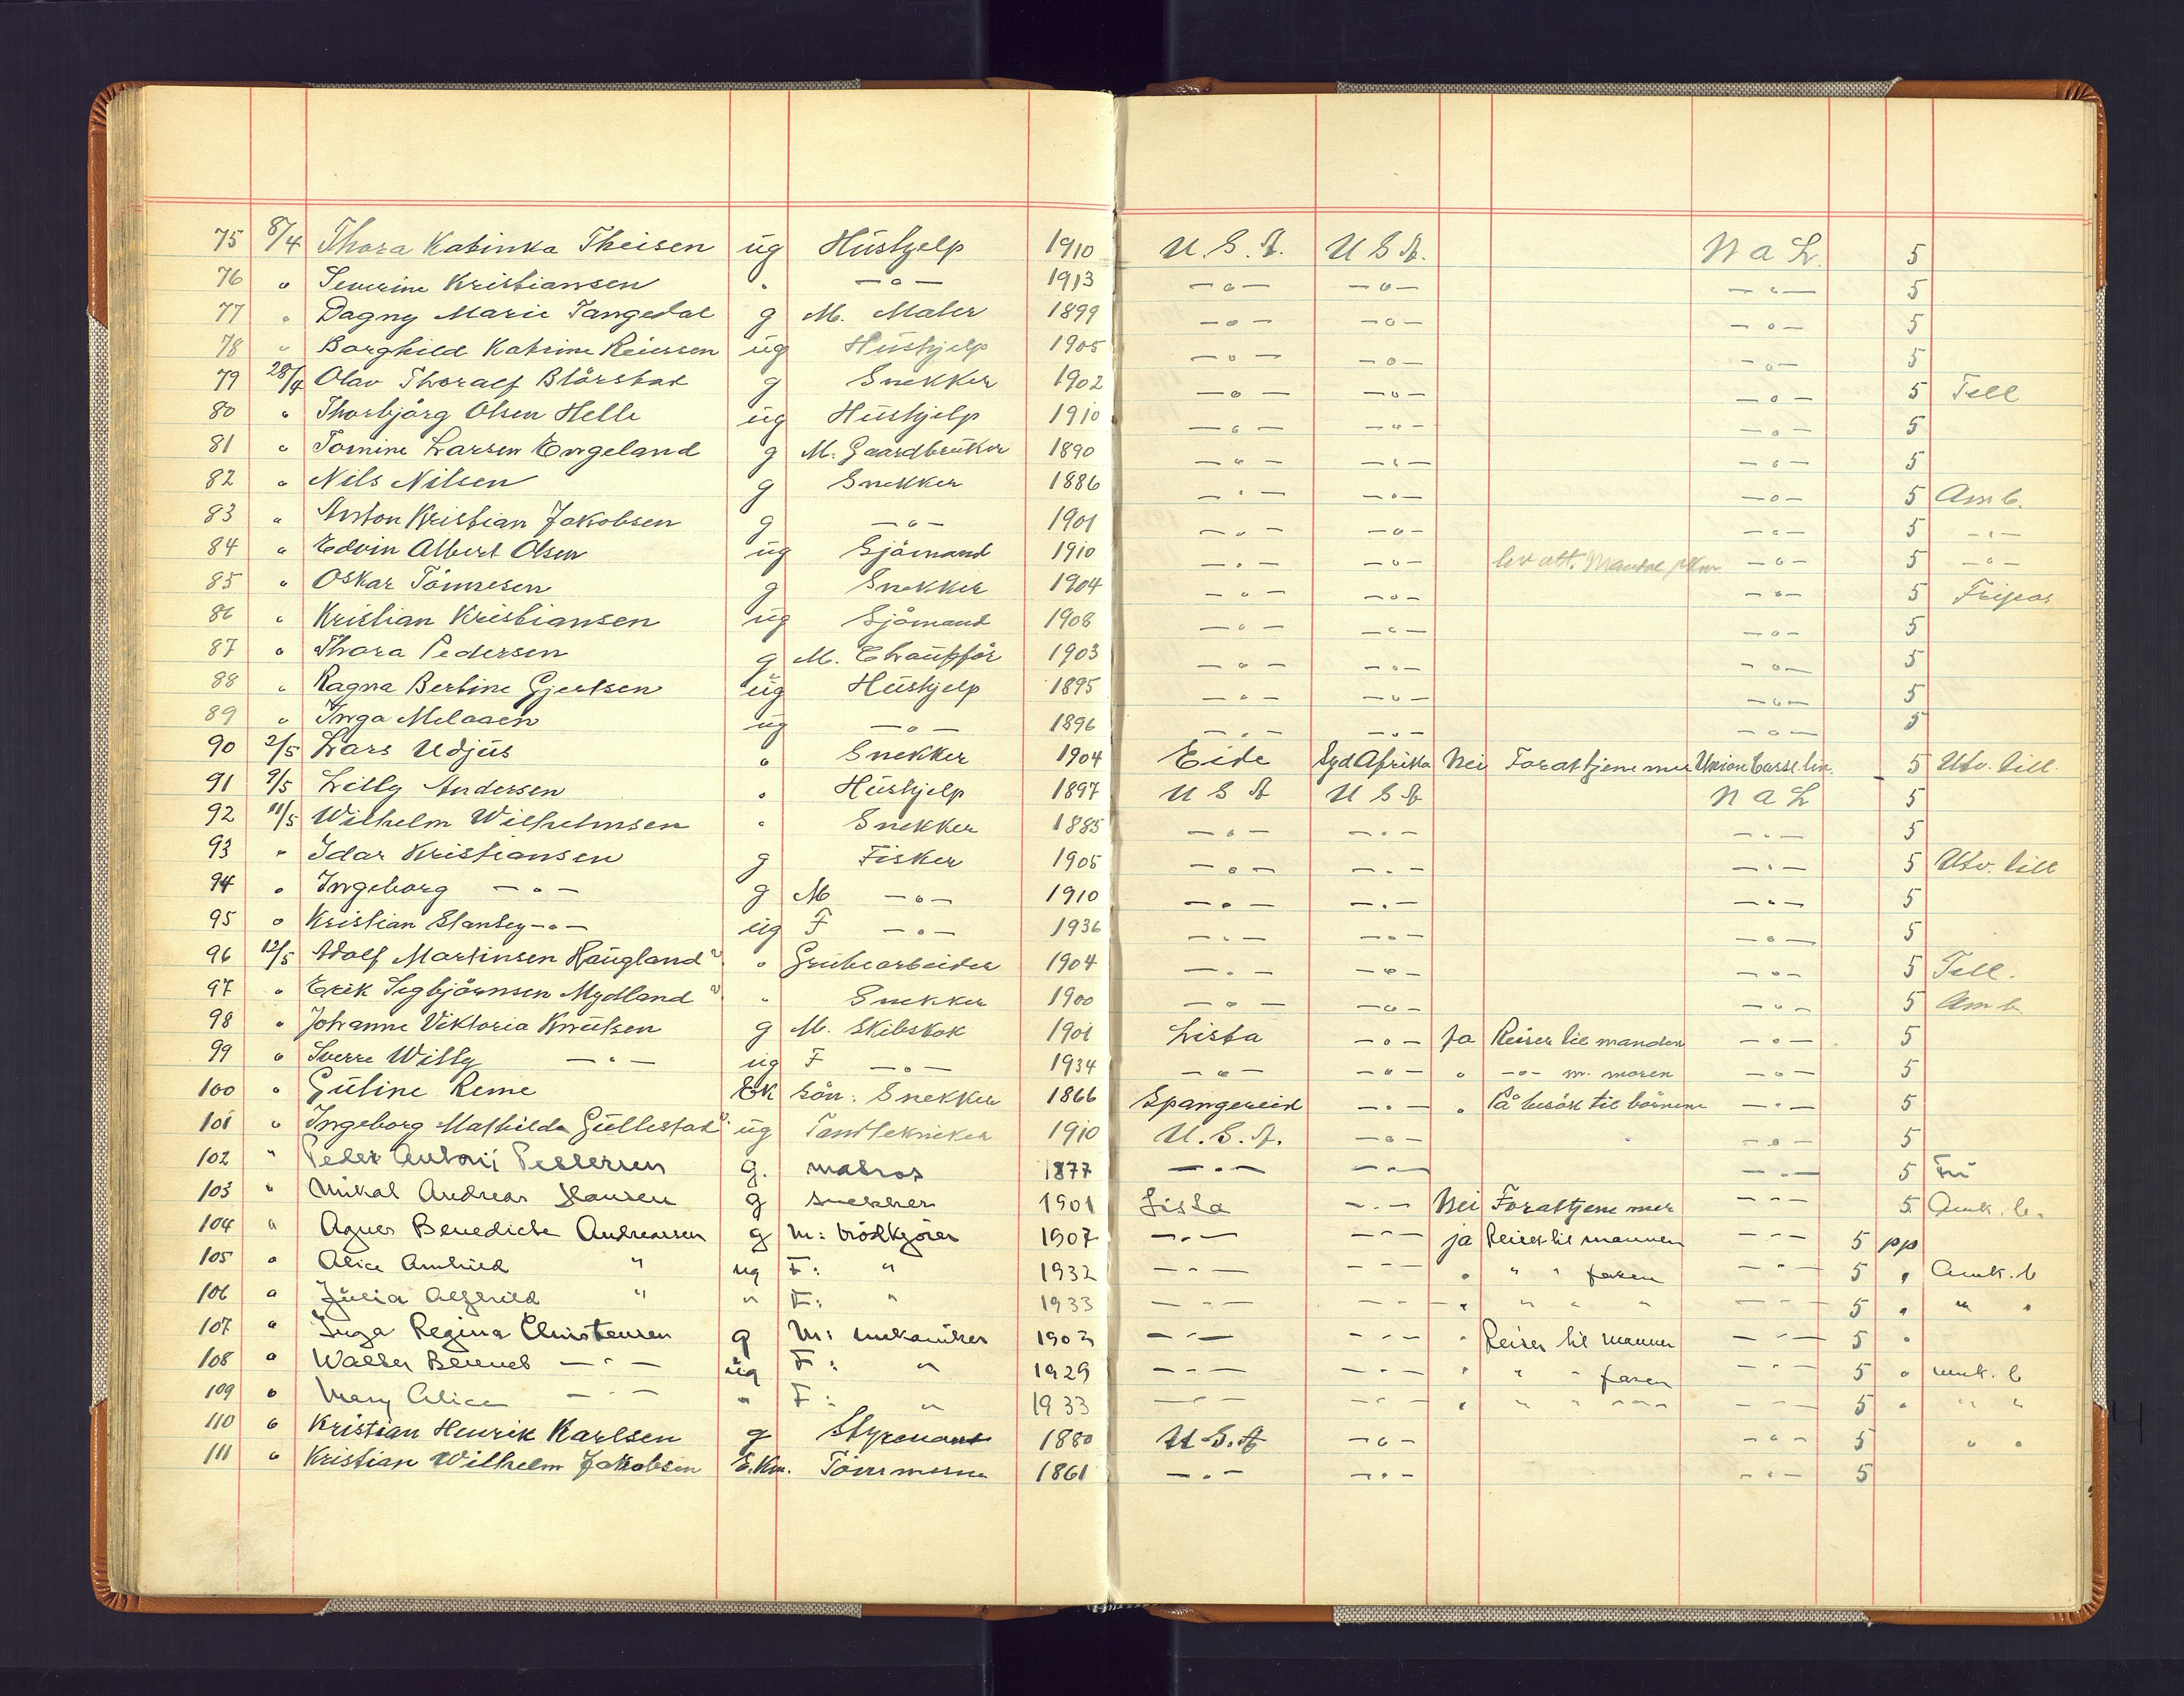 75 8/4 Thora Katinka Theisen ug Hushjelp 1910 U.S.A. U S A. N a L. 5
76 " Severine Kristiansen " —"— 1913 —"— —"— —"— 5
77 " Dagny Marie Tangedal g M. Maler 1899 —"— —"— —"— 5
78 " Borghild Katrine Reiersen ug Hushjelp 1905 —"— —"— —"— 5
79 28/4 Olav Thoralf Blörstad g Snekker 1902 —"— —"— —"— 5 Tell
80 " Thorbjörg Olsen Helle ug Hushjelp 1910 —"— —"— —"— 5
81 " Tomine Larsen Engeland g M. Gaardbruker 1890 —"— —"— —"— 5
82 " Nils Nilsen g Snekker 1886 —"— —"— —"— 5 Am b.
83 " Anton Kristian Jakobsen g —"— 1901 —"— —"— —"— 5 —"—
84 " Edvin Albert Olsen ug Sjömand 1910 —"— —"— lev att. Mandal —"— 5 —"—
85 " Oskar Tönnesen g Snekker 1904 —"— —"— —"— 5 Fripas
86 " Kristian Kristiansen ug Sjömand 1908 —"— —"— —"— 5
87 " Thora Pedersen g M. Chaufför 1903 —"— —"— —"— 5
88 " Ragna Bertine Gjertsen ug Hushjelp 1895 —"— —"— —"— 5
89 " Inga Melaaen ug —"— 1896 —"— —"— —"— 5
90 2/5 Lars Udjus " Snekker 1904 Eide Syd Afrika Nei For at tjene mer Union Castle lin. 5 Utv. till.
91 9/5 Lilly Andersen " Hushjelp 1897 U S A U S A N a L 5
92 11/5 Wilhelm Wilhelmsen " Snekker 1885 —"— —"— —"— 5
93 " Idar Kristiansen g Fisker 1905 —"— —"— —"— 5 Utv. till
94 " Ingeborg —"— g M —"— 1910 —"— —"— —"— 5
95 " Kristian Stanley —"— ug F —"— 1936 —"— —"— —"— 5
96 12/5 Adolf Martinsen Haugland " Grubearbeider 1904 —"— —"— —"— 5 Tell.
97 " Erik Sigbjörnsen Mydland " Snekker 1900 —"— —"— —"— 5 Am b.
98 " Johanne Viktoria Knutsen g M. Skibskok 1901 Lista —"— Ja Reiser til manden —"— 5
99 " Sverre Willy —"— ug F —"— 1934 —"— —"— " —"— m. moren —"— 5
100 " Guline Reme Ek sön: Snekker 1866 Spangereid —"— " På besök til börnene —"— 5
101 " Ingeborg Mathilde Gullestad ug Tandtekniker 1910 U.S.A. —"— —"— 5
102 " Peder Antoni Pettersen g. matros 1877 —"— —"— —"— 5 Fri
103 " Mikal Andreas Hansen g snekker 1901 Lista —"— Nei For at tjene mer —"— 5 Amk. b.
104 " Agnes Benedicte Andreassen g M: brödkjörer 1907 —"— —"— ja Reiser til mannen —"— 5 pp
105 " Alice Anhild " ug F: " 1932 —"— —"— " " " faren —"— 5 " Amk. b
106 " Julia Alfhild " " F: " 1933 —"— —"— " " " " —"— 5 " " "
107 " Inga Regina Christensen g M: mekaniker 1903 —"— —"— " Reiser til mannen —"— 5 "
108 " Walter Bennet —"— ug F: " 1929 —"— —"— " " " faren —"— 5 " amk. b
109 " Mary Alice —"— " F: " 1933 —"— —"— " " " —"— —"— 5 " " "
110 " Kristian Henrik Karlsen g Styrmann 1880 U S. A —"— —"— 5 " "
111 " Kristian Wilhelm Jakobsen E.Km. Tömmerm 1861 —"— —"— —"— 5